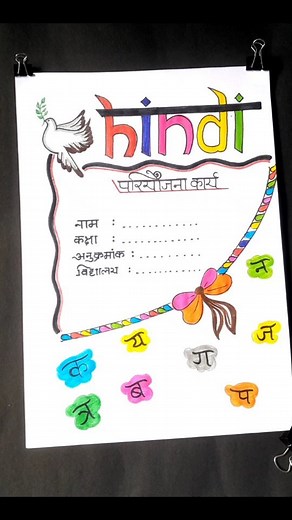 hindi
परियोजना कार्य
नाम : ............
कक्षा : ............
अनुक्रमांक : ............
विद्यालय : ............
न
य
ज
क
ग
ब
त्र
प